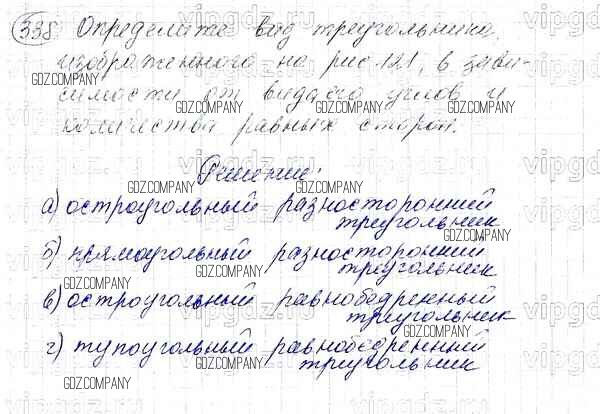 338. Определите вид треугольника,
изображенного на рис. 121, в зави-
симости от вида его углов и
количества равных сторон.
Решение:
а) остроугольный разносторонний
треугольник
б) прямоугольный разносторонний
треугольник
в) остроугольный равнобедренный
треугольник
г) тупоугольный равнобедренный
треугольник